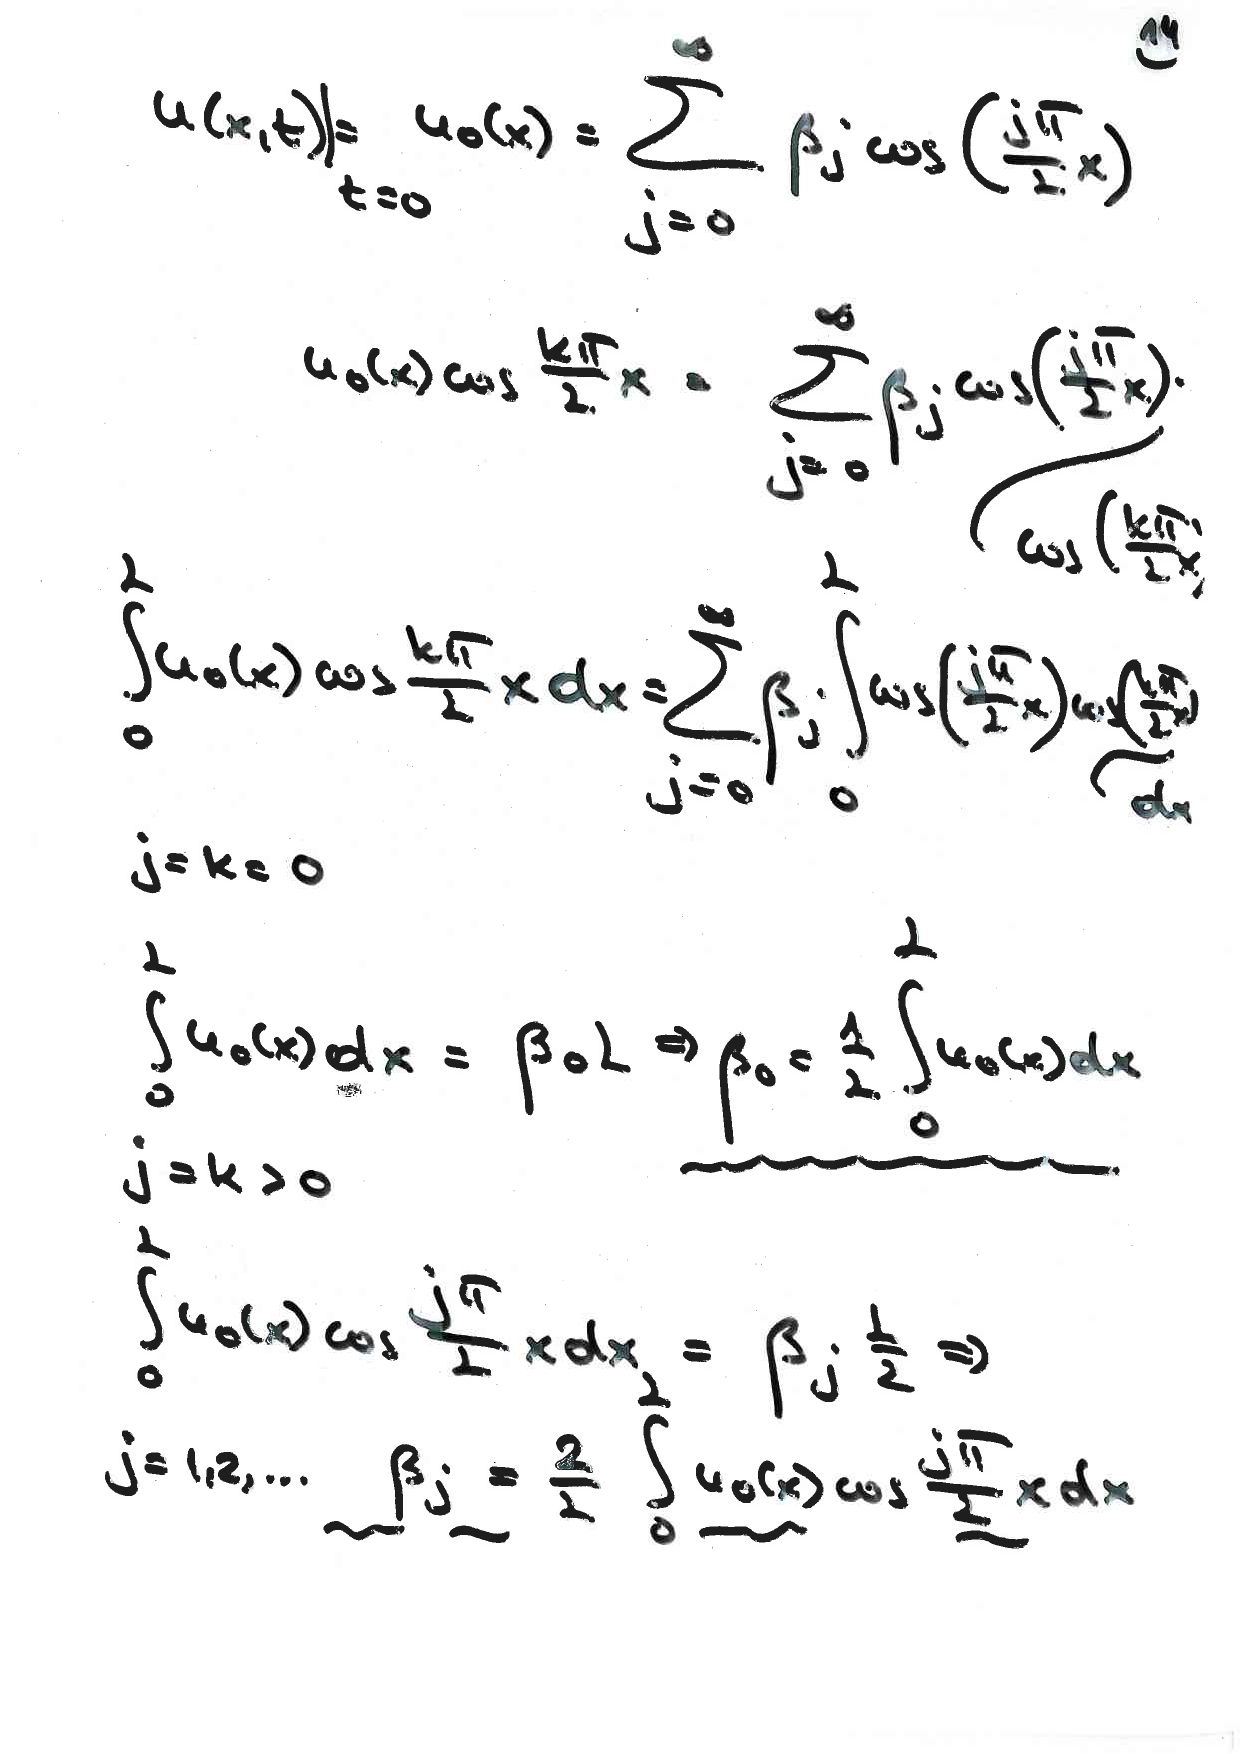 14
u(x,t)|_{t=0} = u₀(x) = ∑_{j=0}^{∞} β_j cos(jπ/L x)
u₀(x) cos kπ/L x = ∑_{j=0}^{∞} β_j cos(jπ/L x) ·
cos(kπ/L x)
∫_0^L u₀(x) cos kπ/L x dx = ∑_{j=0}^{∞} β_j ∫_0^L cos(jπ/L x) cos(kπ/L x)
dx
j = k = 0
∫_0^L u₀(x) dx = β₀ L ⇒ β₀ = 1/L ∫_0^L u₀(x) dx
j = k > 0
∫_0^L u₀(x) cos jπ/L x dx = β_j L/2 ⇒
j = 1,2,... β_j = 2/L ∫_0^L u₀(x) cos jπ/L x dx